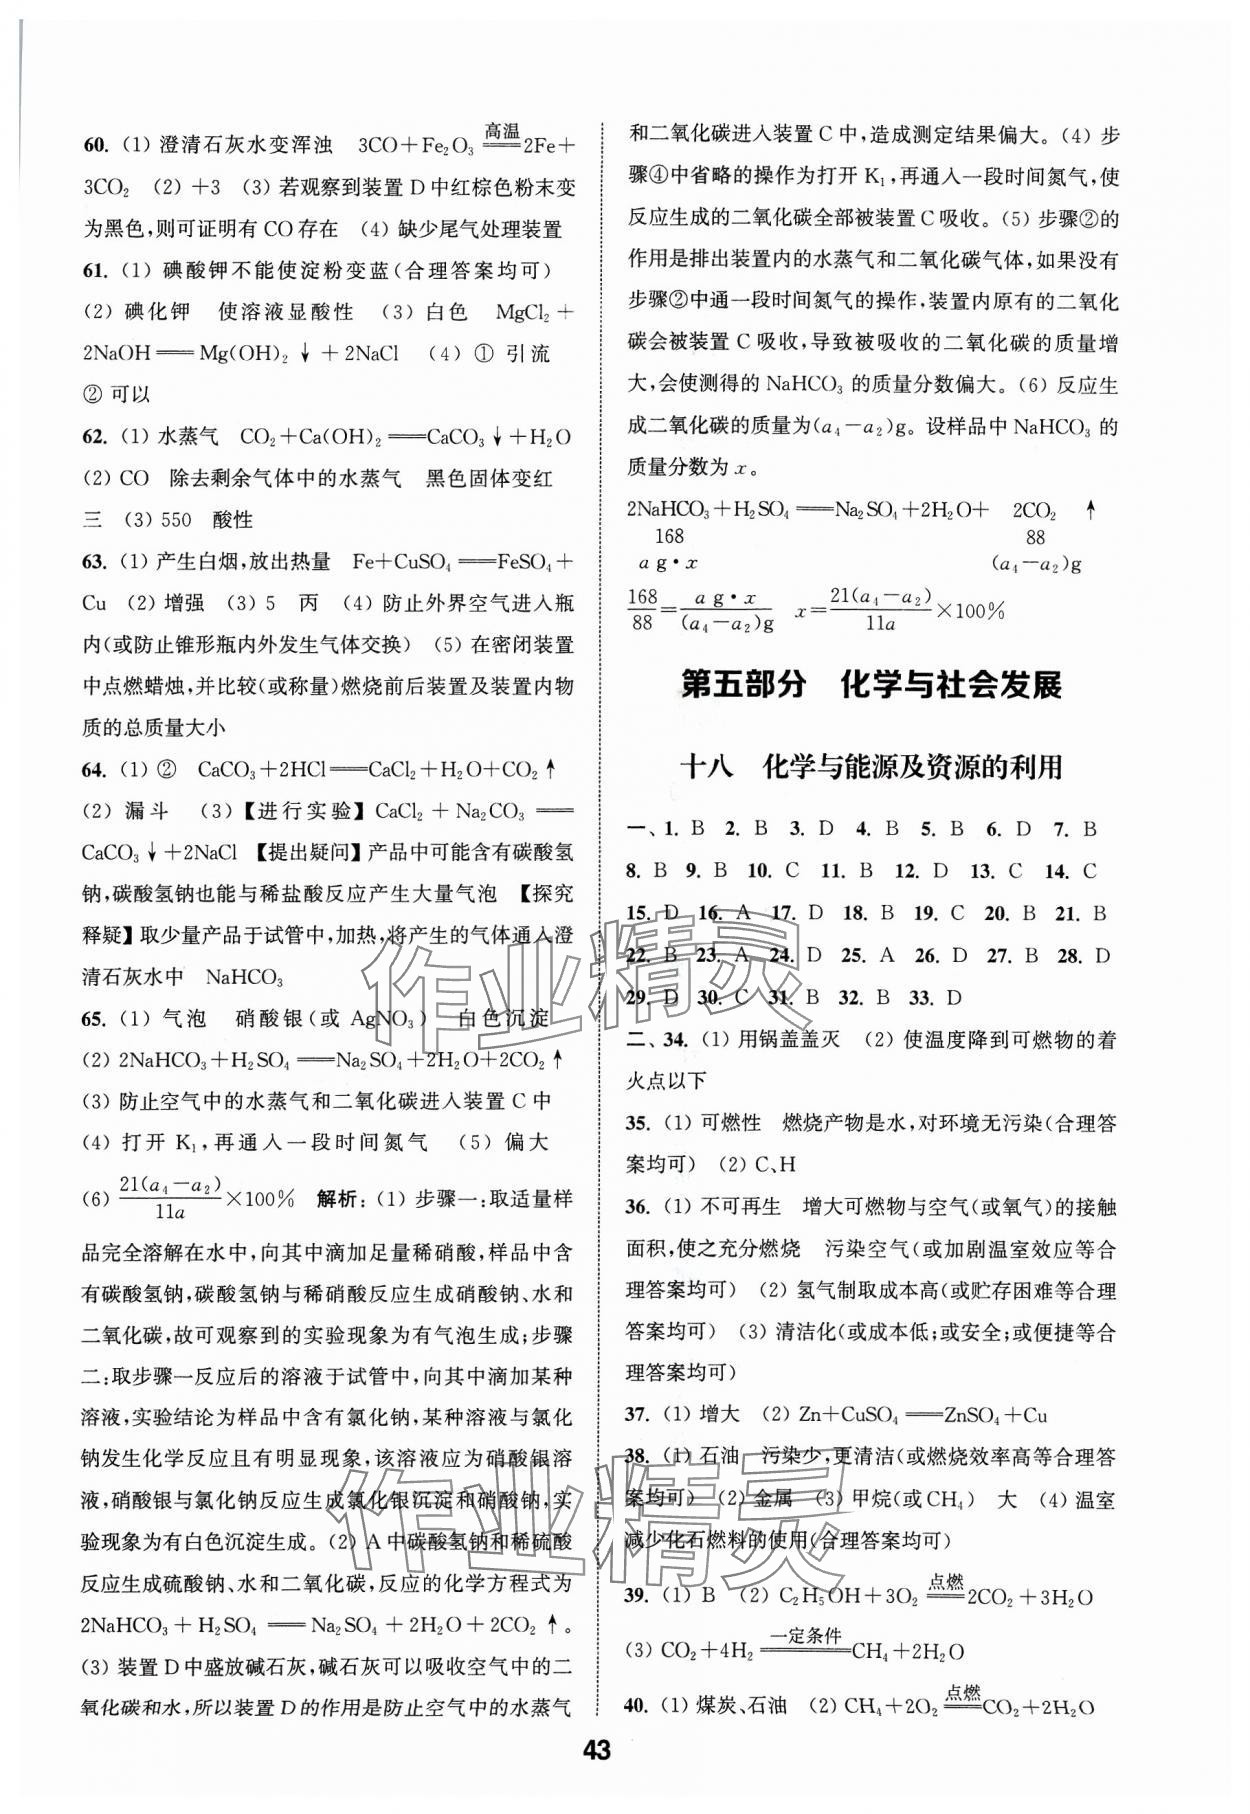 60. (1) 澄清石灰水变浑浊　3CO＋Fe₂O₃ ══高温══ 2Fe＋
3CO₂　(2) ＋3　(3) 若观察到装置 D 中红棕色粉末变
为黑色,则可证明有 CO 存在　(4) 缺少尾气处理装置
61. (1) 碘酸钾不能使淀粉变蓝(合理答案均可)
(2) 碘化钾　使溶液显酸性　(3) 白色　MgCl₂＋
2NaOH══Mg(OH)₂↓＋2NaCl　(4) ① 引流
② 可以
62. (1) 水蒸气　CO₂＋Ca(OH)₂══CaCO₃↓＋H₂O
(2) CO　除去剩余气体中的水蒸气　黑色固体变红
三　(3) 550　酸性
63. (1) 产生白烟,放出热量　Fe＋CuSO₄══FeSO₄＋
Cu　(2) 增强　(3) 5　丙　(4) 防止外界空气进入瓶
内(或防止锥形瓶内外发生气体交换)　(5) 在密闭装置
中点燃蜡烛,并比较(或称量)燃烧前后装置及装置内物
质的总质量大小
64. (1) ②　CaCO₃＋2HCl══CaCl₂＋H₂O＋CO₂↑
(2) 漏斗　(3)【进行实验】CaCl₂＋Na₂CO₃══
CaCO₃↓＋2NaCl　【提出疑问】产品中可能含有碳酸氢
钠,碳酸氢钠也能与稀盐酸反应产生大量气泡　【探究
释疑】取少量产品于试管中,加热,将产生的气体通入澄
清石灰水中　NaHCO₃
65. (1) 气泡　硝酸银(或 AgNO₃)　白色沉淀
(2) 2NaHCO₃＋H₂SO₄══Na₂SO₄＋2H₂O＋2CO₂↑
(3) 防止空气中的水蒸气和二氧化碳进入装置 C 中
(4) 打开 K₁,再通入一段时间氮气　(5) 偏大
(6) 21(a₄－a₂)/11a×100%　解析: (1) 步骤一:取适量样
品完全溶解在水中,向其中滴加足量稀硝酸,样品中含
有碳酸氢钠,碳酸氢钠与稀硝酸反应生成硝酸钠、水和
二氧化碳,故可观察到的实验现象为有气泡生成;步骤
二:取步骤一反应后的溶液于试管中,向其中滴加某种
溶液,实验结论为样品中含有氯化钠,某种溶液与氯化
钠发生化学反应且有明显现象,该溶液应为硝酸银溶
液,硝酸银与氯化钠反应生成氯化银沉淀和硝酸钠,实
验现象为有白色沉淀生成。(2) A 中碳酸氢钠和稀硫酸
反应生成硫酸钠、水和二氧化碳,反应的化学方程式为
2NaHCO₃＋H₂SO₄══Na₂SO₄＋2H₂O＋2CO₂↑。
(3) 装置 D 中盛放碱石灰,碱石灰可以吸收空气中的二
氧化碳和水,所以装置 D 的作用是防止空气中的水蒸气
和二氧化碳进入装置 C 中,造成测定结果偏大。(4) 步
骤④中省略的操作为打开 K₁,再通入一段时间氮气,使
反应生成的二氧化碳全部被装置 C 吸收。(5) 步骤②的
作用是排出装置内的水蒸气和二氧化碳气体,如果没有
步骤②中通一段时间氮气的操作,装置内原有的二氧化
碳会被装置 C 吸收,导致被吸收的二氧化碳的质量增
大,会使测得的 NaHCO₃ 的质量分数偏大。(6) 反应生
成二氧化碳的质量为(a₄－a₂)g。设样品中 NaHCO₃ 的
质量分数为 x。
2NaHCO₃＋H₂SO₄══Na₂SO₄＋2H₂O＋　2CO₂　↑
168　88
a g·x　(a₄－a₂)g
168/88＝a g·x/(a₄－a₂)g　x＝21(a₄－a₂)/11a×100%
第五部分　化学与社会发展
十八　化学与能源及资源的利用
一、1. B　2. B　3. D　4. B　5. B　6. D　7. B
8. B　9. B　10. C　11. B　12. D　13. C　14. C
15. D　16. A　17. D　18. B　19. C　20. B　21. B
22. B　23. A　24. D　25. A　26. D　27. B　28. D
29. D　30. C　31. B　32. B　33. D
二、34. (1) 用锅盖盖灭　(2) 使温度降到可燃物的着
火点以下
35. (1) 可燃性　燃烧产物是水,对环境无污染(合理答
案均可)　(2) C、H
36. (1) 不可再生　增大可燃物与空气(或氧气)的接触
面积,使之充分燃烧　污染空气(或加剧温室效应等合
理答案均可)　(2) 氢气制取成本高(或贮存困难等合理
答案均可)　(3) 清洁化(或成本低;或安全;或便捷等合
理答案均可)
37. (1) 增大　(2) Zn＋CuSO₄══ZnSO₄＋Cu
38. (1) 石油　污染少,更清洁(或燃烧效率高等合理答
案均可)　(2) 金属　(3) 甲烷(或 CH₄)　大　(4) 温室
减少化石燃料的使用(合理答案均可)
39. (1) B　(2) C₂H₅OH＋3O₂ ══点燃══ 2CO₂＋3H₂O
(3) CO₂＋4H₂ ══一定条件══ CH₄＋2H₂O
40. (1) 煤炭、石油　(2) CH₄＋2O₂ ══点燃══ CO₂＋2H₂O
43
作业精灵
作业精灵